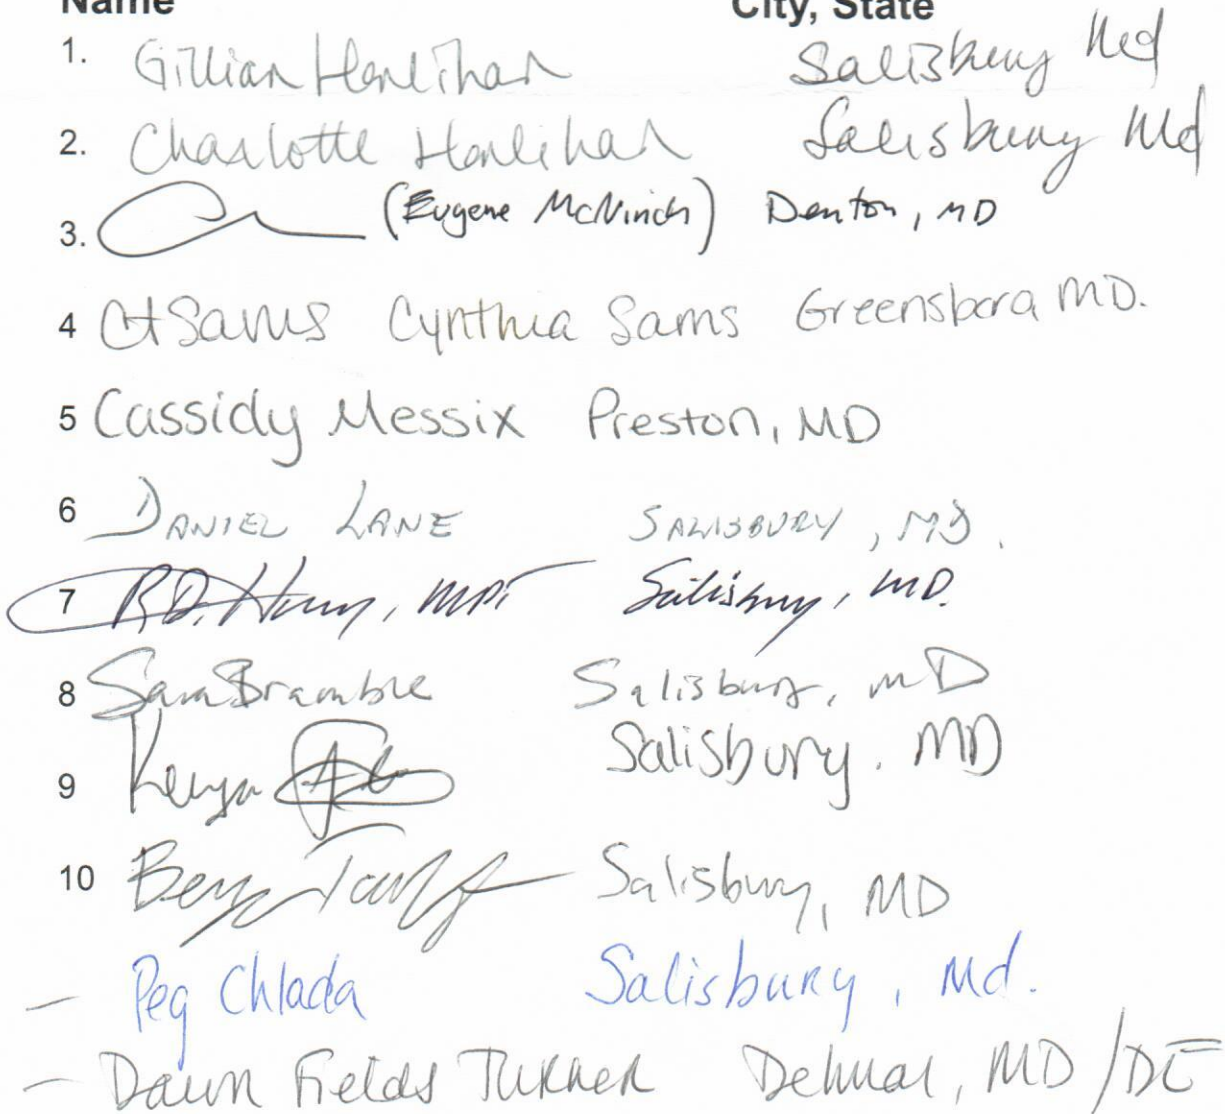 Name City, State
1. Gillian Honlihan Salisbury Md
2. Charlotte Honlihan Salisbury Md
3. (Eugene McNinch) Denton, MD
4 Cynthia Sams Greensbora MD.
5 Cassidy Messix Preston, MD
6 DANIEL LANE SALISBURY, MD.
7 R.D. Salisbury, MD.
8 Sara Bramble Salisbury, MD
9 Kenya Salisbury, MD
10 Salisbury, MD
- Peg Chlada Salisbury, Md.
- Dawn Fields Turner Delmar, MD/DE